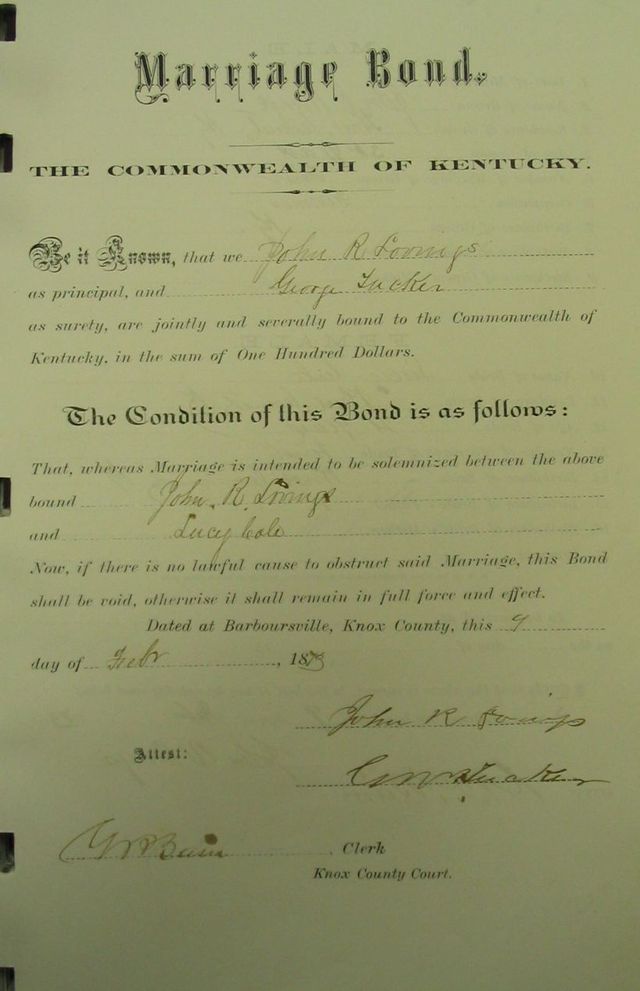 Marriage Bond.
THE COMMONWEALTH OF KENTUCKY.
Be it Known, that we John R Lovings
as principal, and George Tucker
as surety, are jointly and severally bound to the Commonwealth of
Kentucky, in the sum of One Hundred Dollars.
The Condition of this Bond is as follows:
That, whereas Marriage is intended to be solemnized between the above
bound John R. Lovings
and Lucy Cole
Now, if there is no lawful cause to obstruct said Marriage, this Bond
shall be void, otherwise it shall remain in full force and effect.
Dated at Barboursville, Knox County, this 9
day of Febr , 18
John R Lovings
Attest:
Tucker
Clerk
Knox County Court.